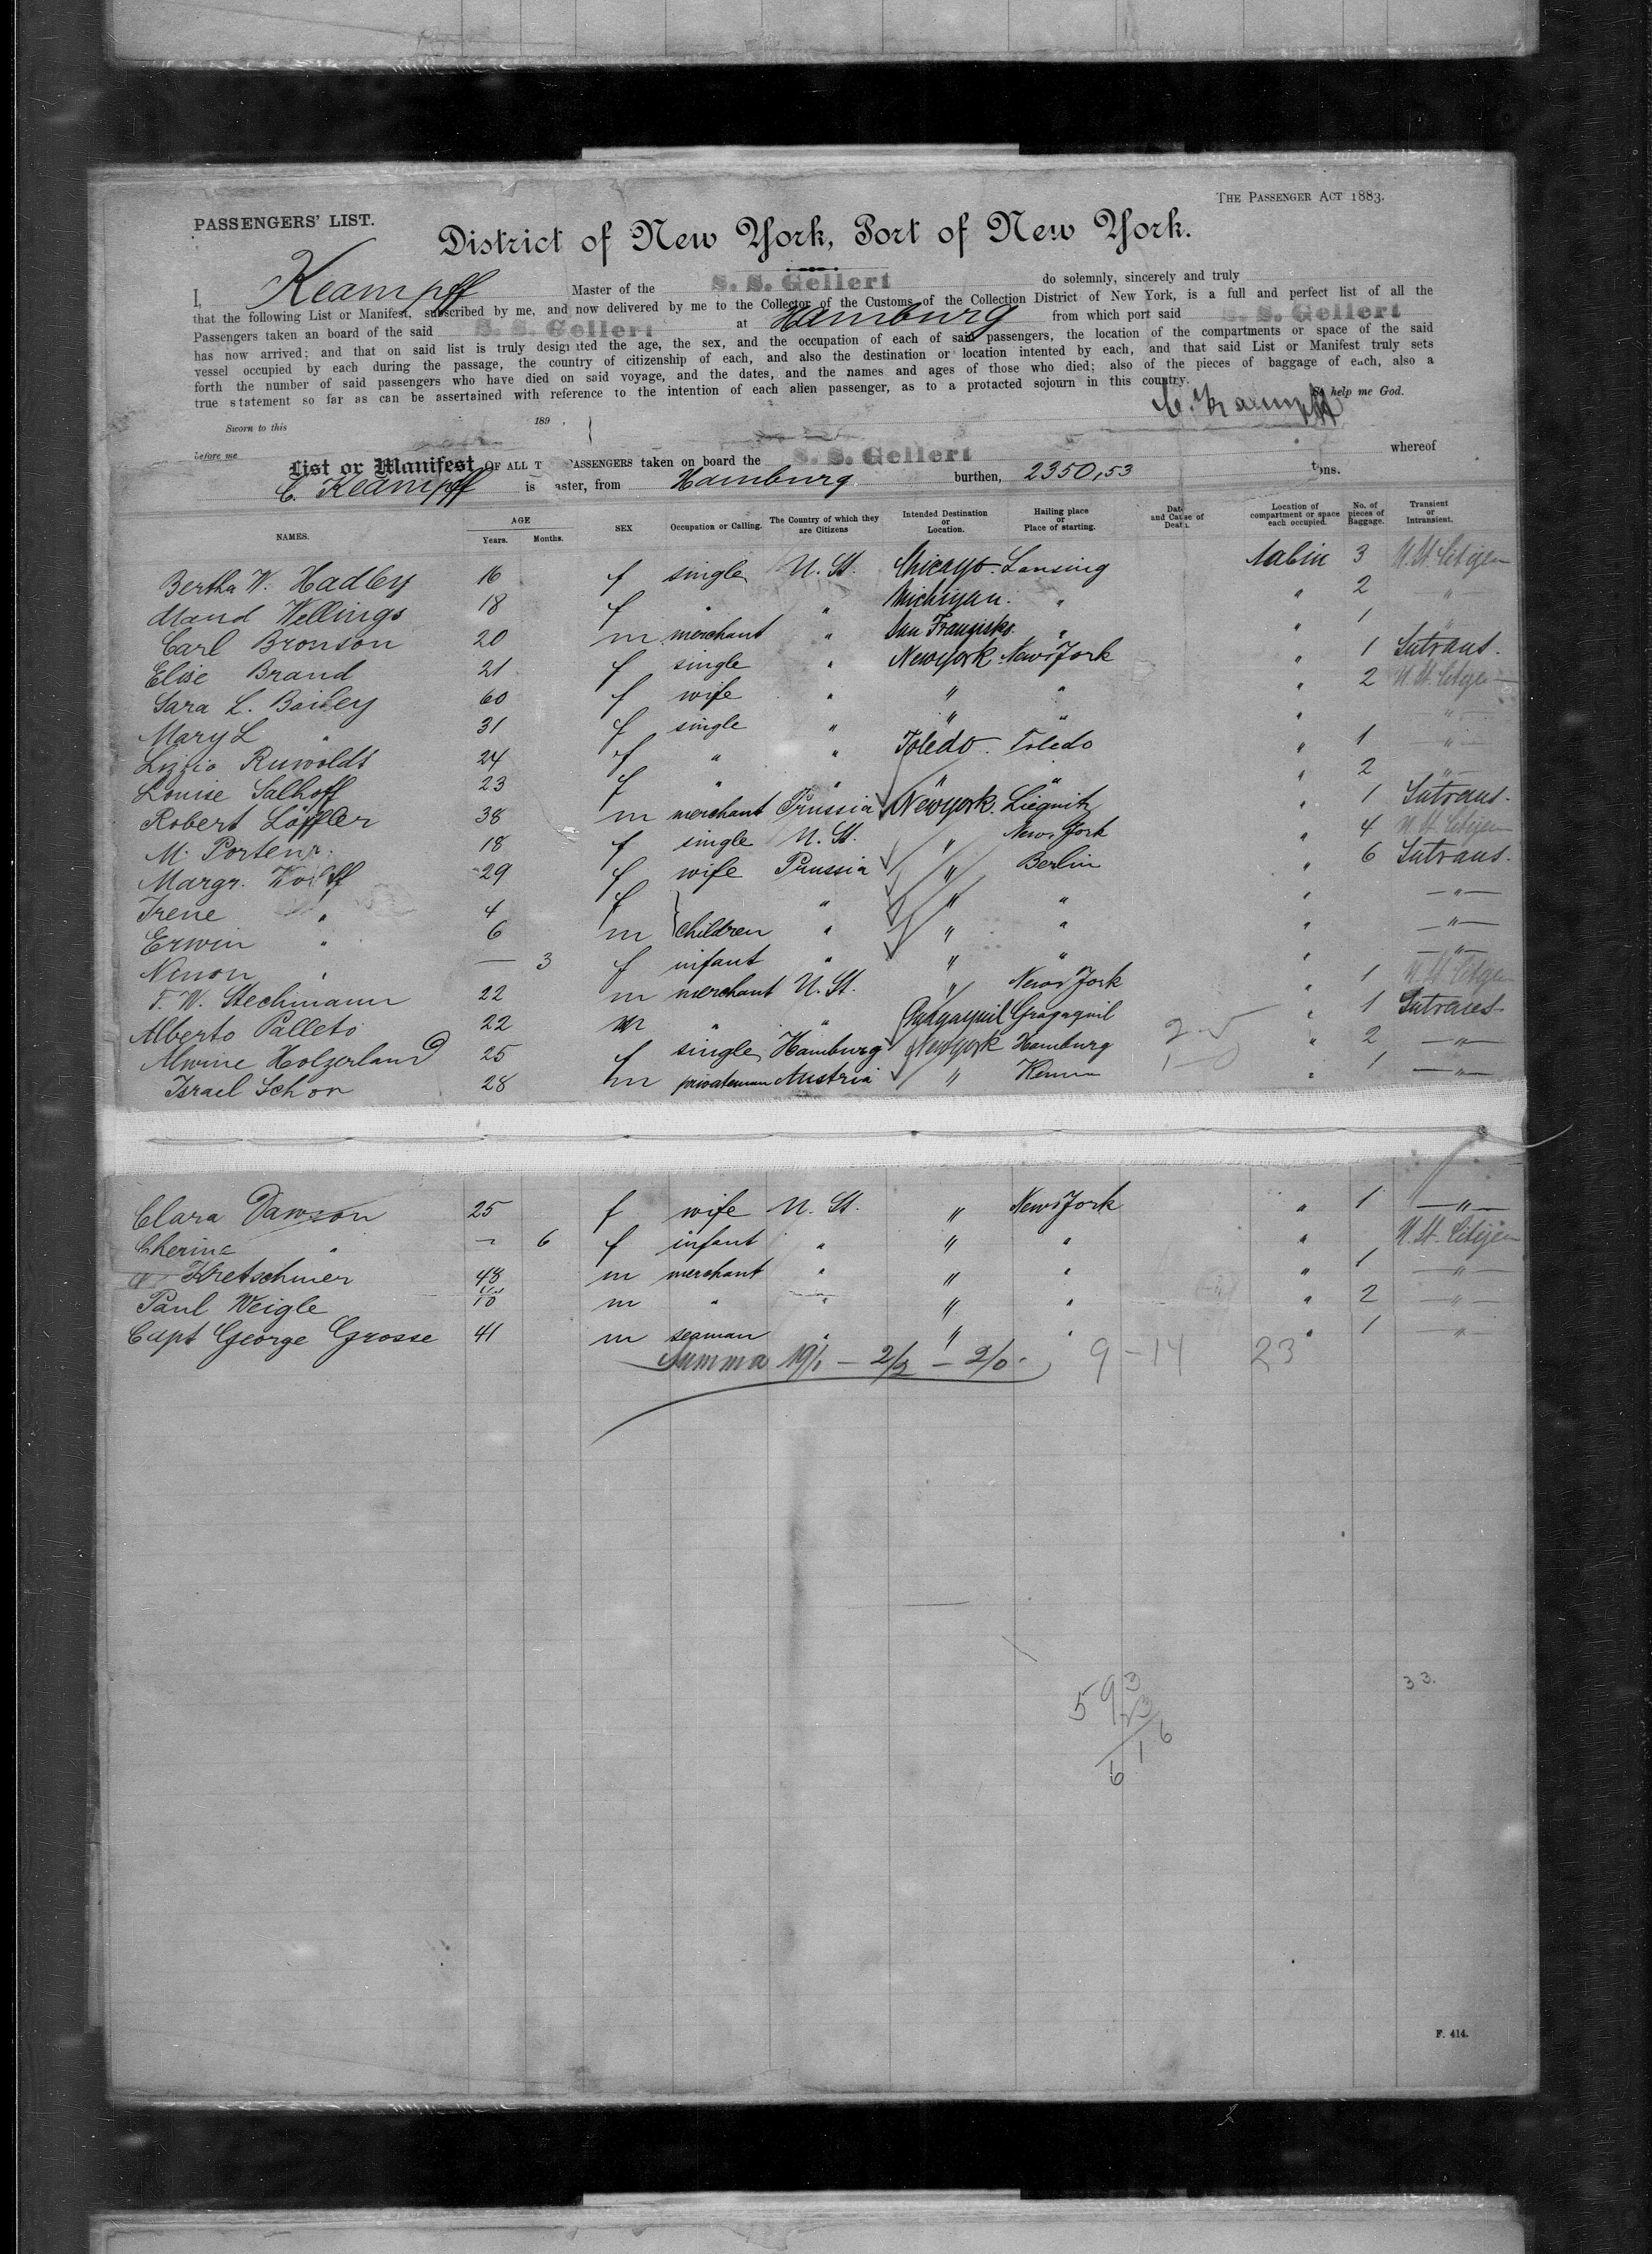 THE PASSENGER ACT 1883.
PASSENGERS' LIST.
District of New York, Port of New York.
I, Keampff Master of the S. S. Gellert do solemnly, sincerely and truly
that the following List or Manifest, subscribed by me, and now delivered by me to the Collector of the Customs of the Collection District of New York, is a full and perfect list of all the
Passengers taken an board of the said S. S. Gellert at Hamburg from which port said S. S. Gellert
has now arrived; and that on said list is truly designated the age, the sex, and the occupation of each of said passengers, the location of the compartments or space of the said
vessel occupied by each during the passage, the country of citizenship of each, and also the destination or location intented by each, and that said List or Manifest truly sets
forth the number of said passengers who have died on said voyage, and the dates, and the names and ages of those who died; also of the pieces of baggage of each, also a
true statement so far as can be assertained with reference to the intention of each alien passenger, as to a protacted sojourn in this country. So help me God.
C. Kaempff
Sworn to this 189 ,
before me
List or Manifest OF ALL T PASSENGERS taken on board the S. S. Gellert whereof
C. Keampff is aster, from Hamburg burthen, 2350,53 tons.
NAMES. AGE Years. Months. SEX Occupation or Calling. The Country of which they are Citizens Intended Destination or Location. Hailing place or Place of starting. Date and Cause of Death. Location of compartment or space each occupied. No. of pieces of Baggage. Transient or Intransient.
Bertha W. Hadley 16 f single U. St. Chicago. Lansing Cabin 3 U. St. Citizen
Maud Wellings 18 f " " Michigan. " " 2 "
Carl Bronson 20 m merchant " San Franzisko. " " 1 "
Elise Brand 21 f single " Newyork New York " 1 Intrans.
Sara L. Bailey 60 f wife " " " " 2 U. St. Citizen
Mary L " 31 f single " " " " "
Lizzio Ruwoldt 24 f " " Toledo. Toledo " 1 "
Louise Salhoff 23 f " " " " " 2 "
Robert Löffler 38 m merchant Prussia Newyork. Liegnitz " 1 Intrans.
M. Porten 18 f single U. St. " New York " 4 U. St. Citizen
Margr. 29 f wife Prussia " Berlin " 6 Intrans.
Irene " 4 f " " " " "
Erwin " 6 m children " " " " "
Ninon " — 3 f infant " " " " "
F. W. Stechmann 22 m merchant U. St. " New York " 1 U. St. Citizen
Alberto Palleto 22 m " " Guayaquil " 1 Intrans.
Alwine Holzerland 25 f single Hamburg Newyork Hamburg " 2 "
Israel Schon 28 m privateman Austria " " 1 "
Clara Dawson 25 f wife U. St. " New York " 1 "
Cherine " — 6 f infant " " " " U. St. Citizen
Kretschmer 48 m merchant " " " " 1 "
Paul Weigle m " " " " " 2 "
Capt George Grosse 41 m seaman " " " " 1 "
Summa 19/1 — 2/2 — 2/0. 9 - 14 23
33.
593
23
616
F. 414.